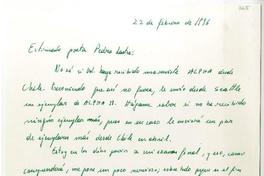 265
22 de febrero de 1996
Estimado poeta Pedro Lastra:
No sé si Ud. haya recibido mi revista ALPHA desde
Chile. Creyendo que así no fuera, le envío desde Seattle
un ejemplar de ALPHA 11. Hágame saber si no ha recibido
ningún ejemplar más, pues en ese caso le enviaré un par
de ejemplares más desde Chile en abril.
Estoy en los días previos a mi examen final, y eso, como
comprenderá, me pone un poco nervioso, sobre todo pues es al fin